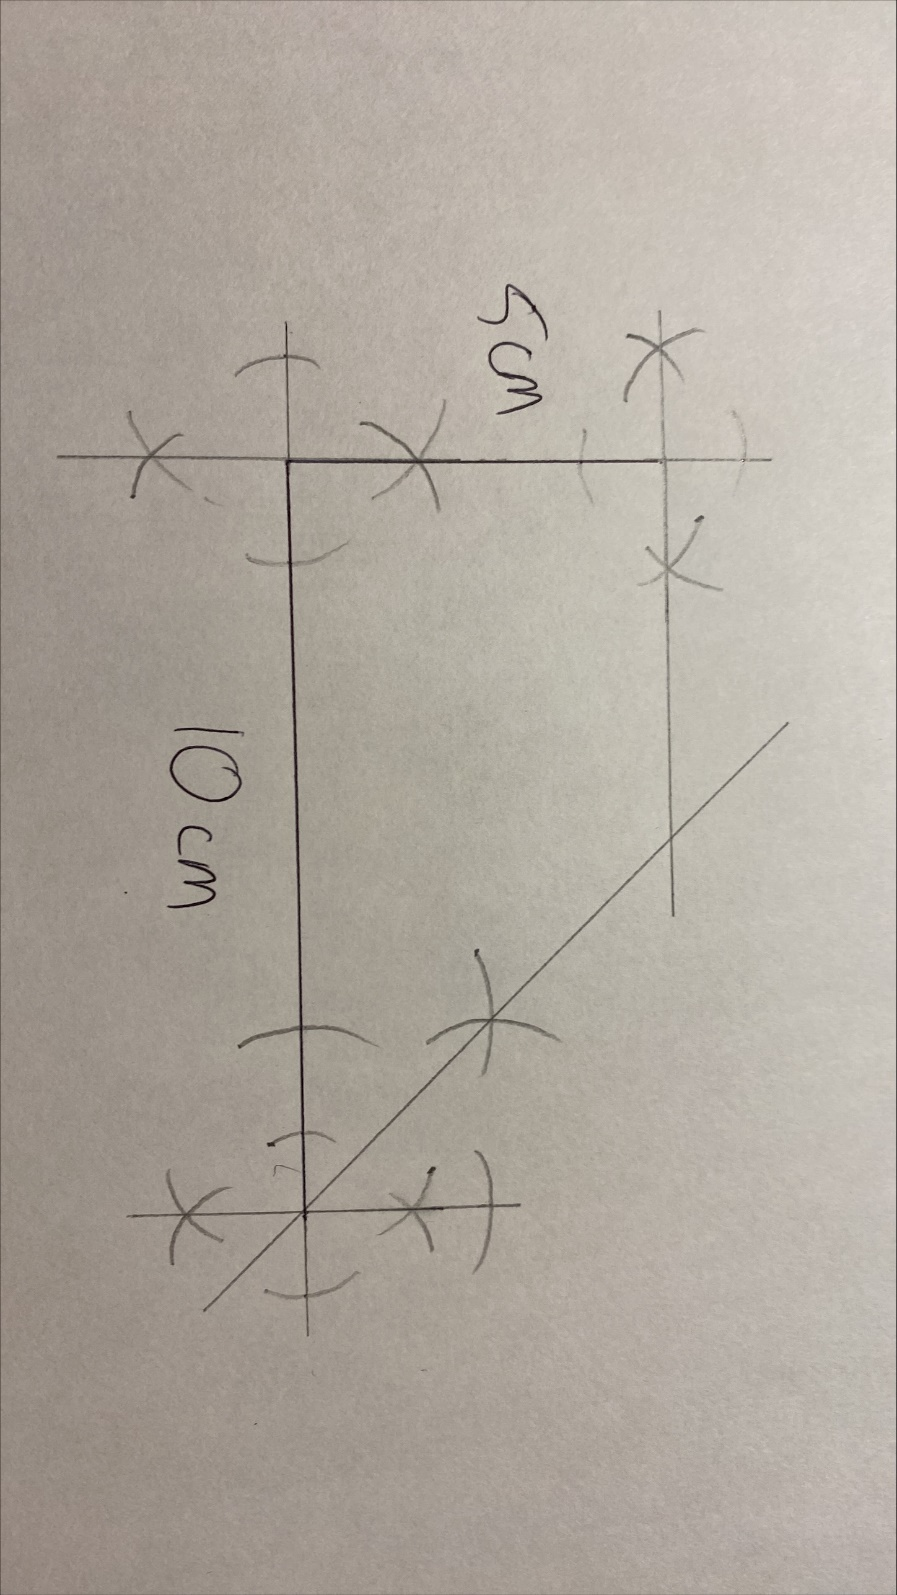 5cm
10cm